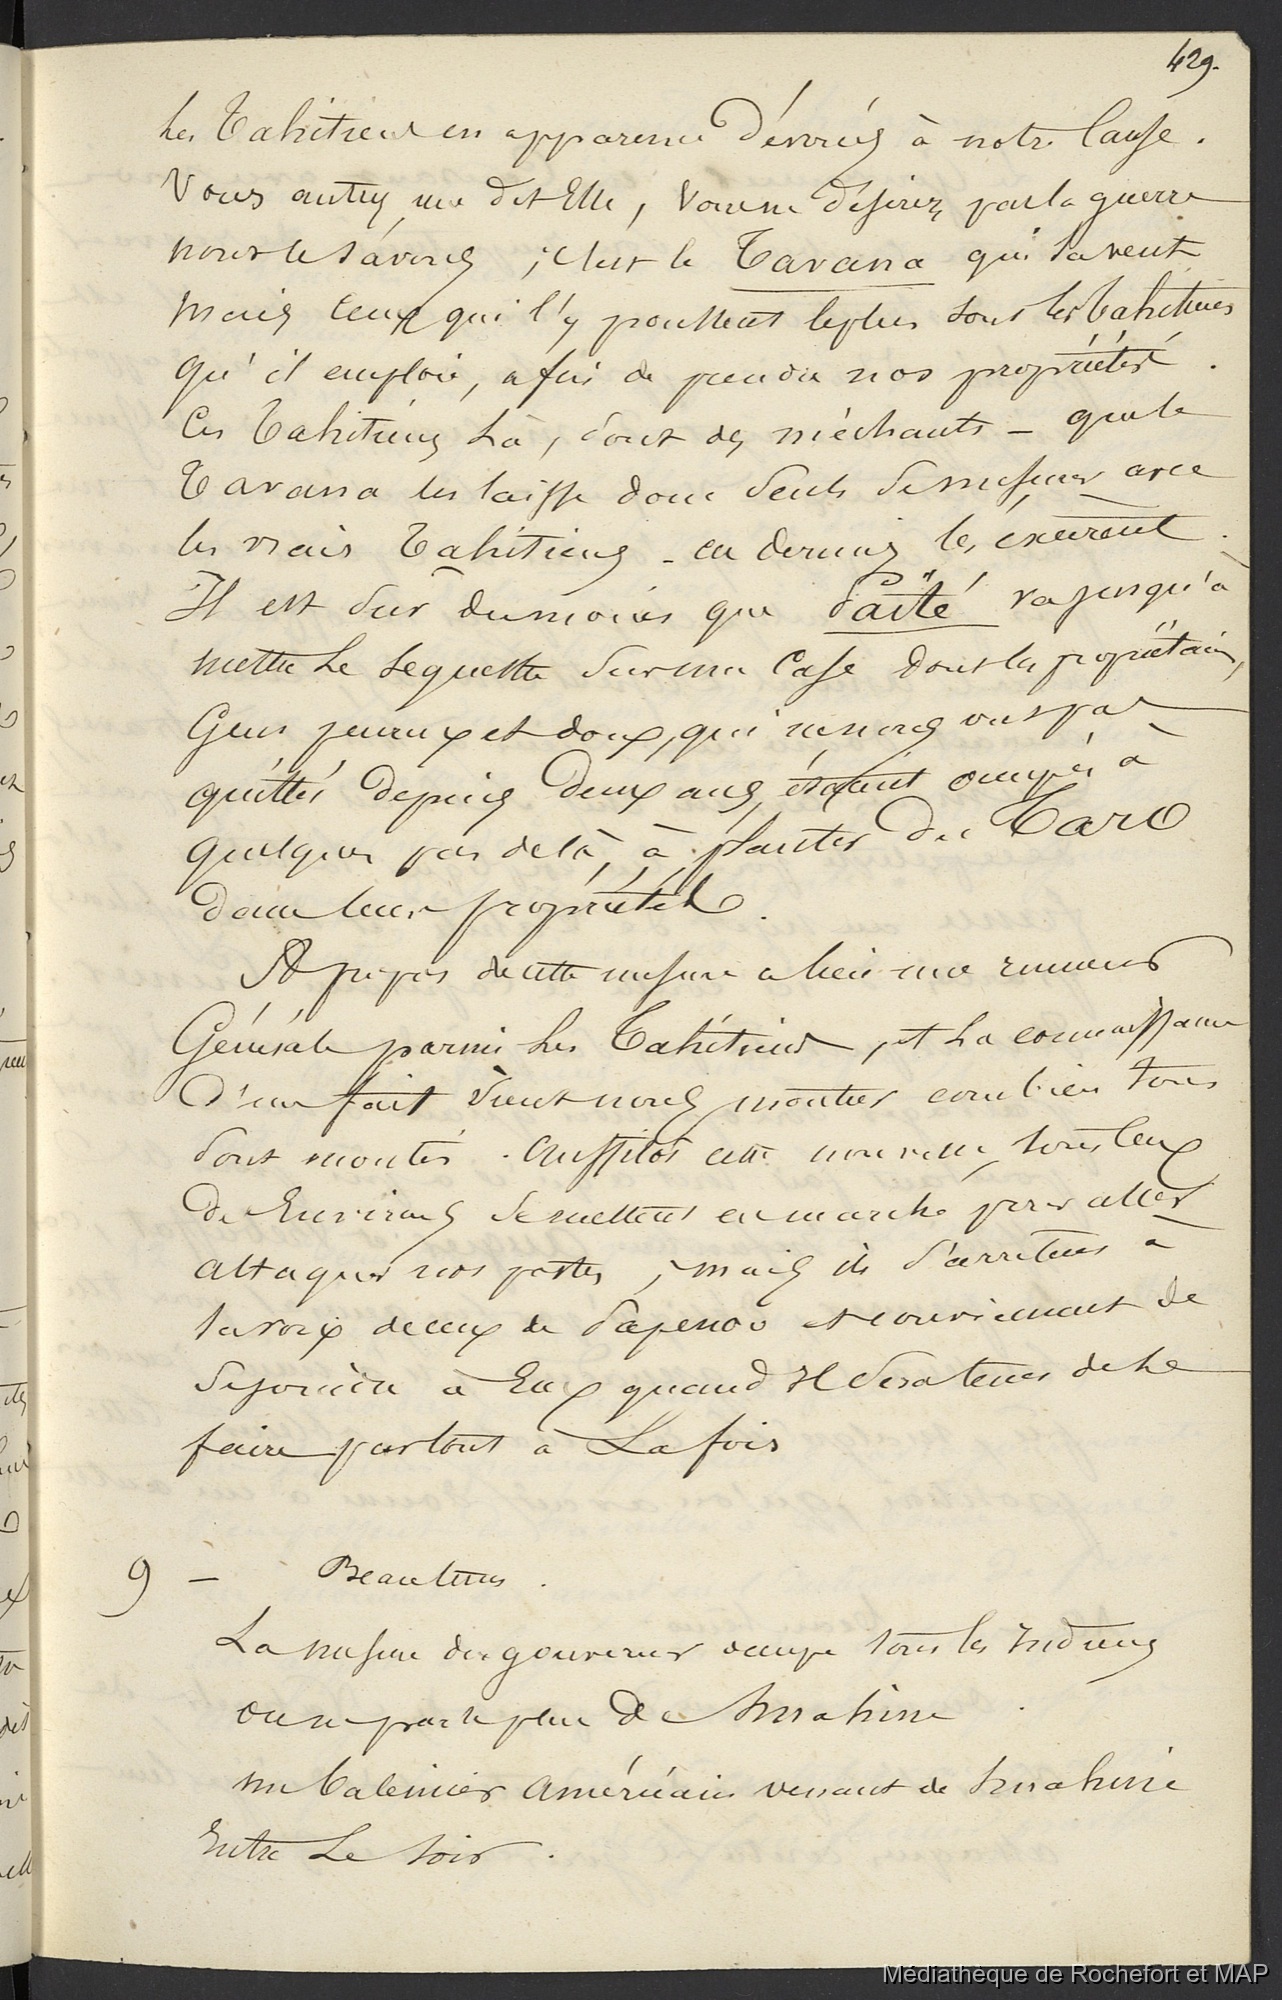 429.
les Tahitiens en apparence dévoués à notre Cause.
Vous autres, me dit Elle, vous ne désirez pas la guerre
nous le savons ; c'est le Tavana qui la veut
mais ceux qui l'y poussent le plus sont les Tahitiens
qu'il emploie, afin de prendre nos propriétés.
Ces Tahitiens là, sont des méchants - que le
Tavana les laisse donc seuls se mesurer avec
les vrais Tahitiens - ces derniers les exècrent.
Il est sur du moins que Païté va jusqu'à
mettre le sequestre sur ma Case dont les propriétaires,
Gens jeunes et doux, qui ne nous ont pas
quittés depuis deux ans, étaient occupés à
quelques pas de là, à planter du Taro
dans leur propriété.
A propos de cette mesure a lieu une rumeur
Générale parmi les Tahitiens, et la connaissance
d'un fait vient nous montrer combien tous
sont montés. Aussitôt cette nouvelle, tous ceux
des Environs se mettent en marche pour aller
attaquer nos postes ; mais ils s'arrêtent à
la voix de ceux de Papenoo et conviennent de
se joindre à Eux quand il sera tems de le
faire partout à La fois
9 - Beau tems.
La mesure du gouverneur occupe tous les Indiens
on ne parle plus de Huahine.
un Baleinier américain venant de Huahine
Entre Le soir.
Médiathèque de Rochefort et MAP